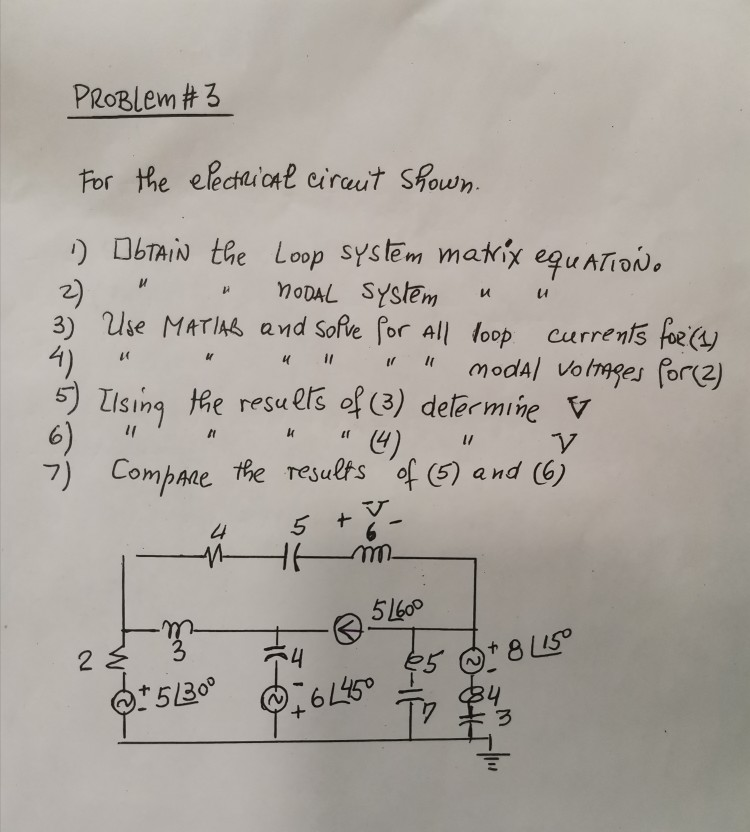 PROBLEM # 3
For the electrical circuit shown.
1) OBTAIN the Loop system matrix equation.
2) " " NODAL system " "
3) Use MATLAB and solve for All loop currents for (1)
4) " " " " " " nodal voltages for (2)
5) Using the results of (3) determine V
6) " " " " (4) " V
7) Compare the results of (5) and (6)
V
4 5 + 6 -
5∠60°
3
2 4 5 + 8∠15°
-
+ 5∠30° - 6∠45° 4
- + 7 3